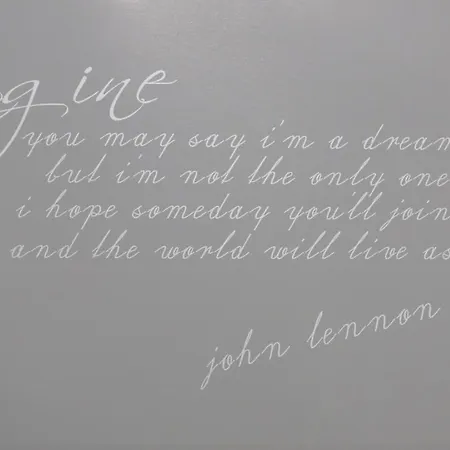 gine
you may say i'm a dream
but i'm not the only one
i hope someday you'll join
and the world will live as
john lennon